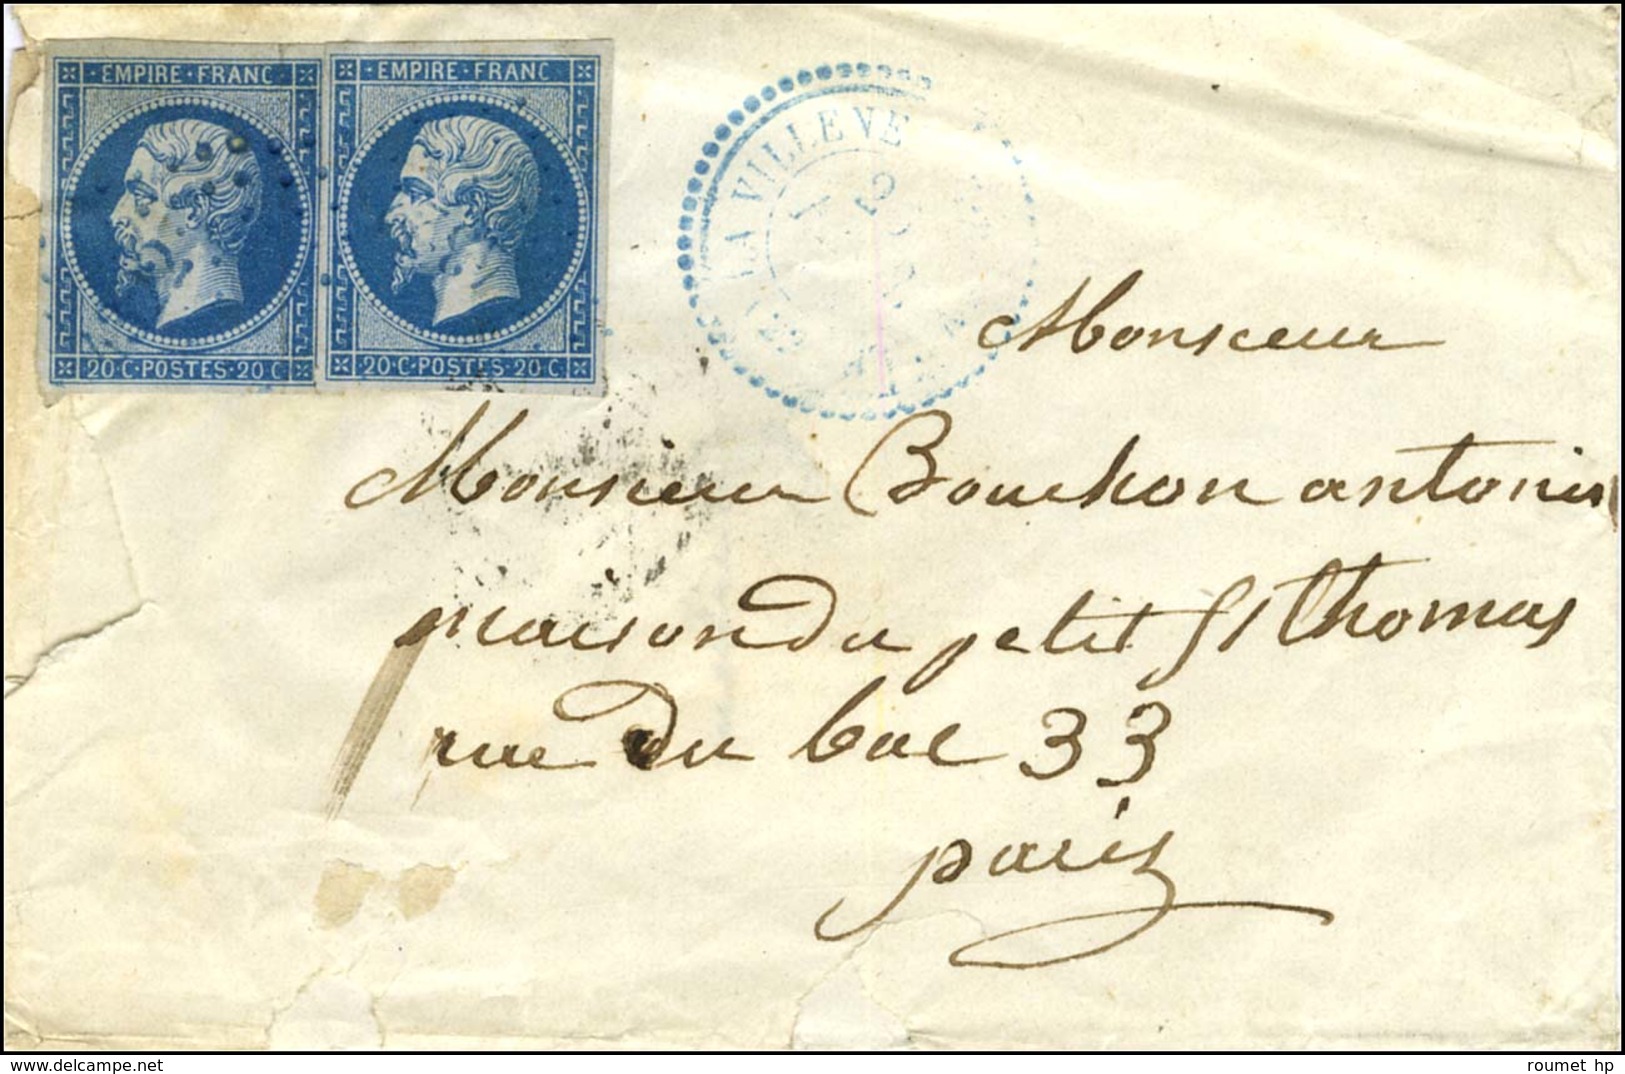 EMPIRE · FRANC
EMPIRE · FRANC
20 · C · POSTES · 20 C
20 · C · POSTES · 20 C
LA VILLENEUVE
Monsieur
Monsieur Bouchon antonin
maison du petit St thomas
rue du bac 33
paris
www.delcampe.net
roumet hp